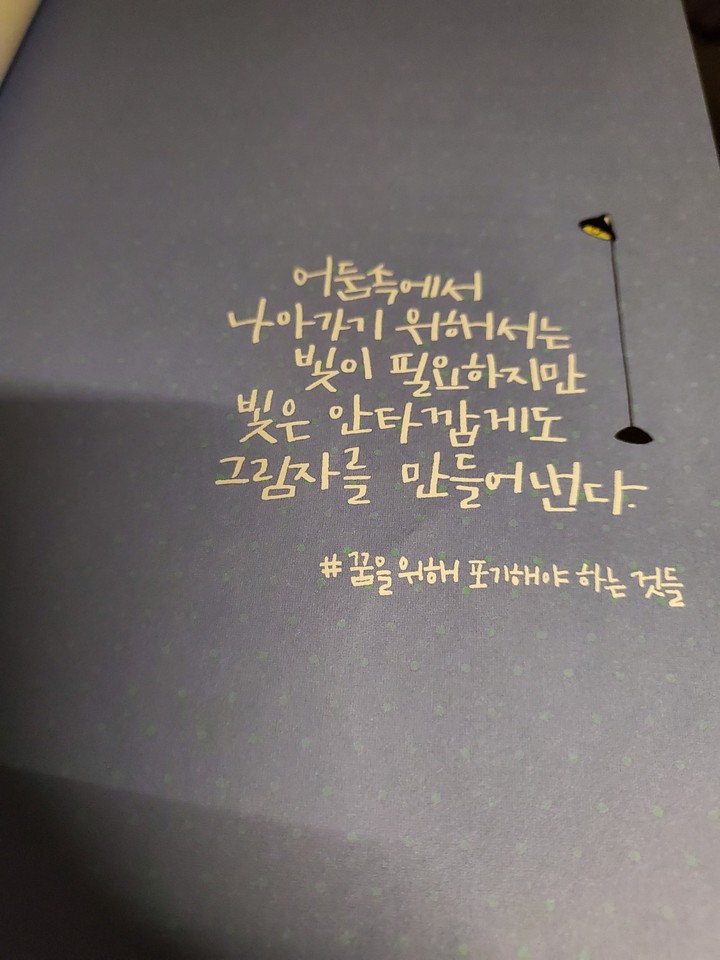 어둠속에서
나아가기 위해서는
빛이 필요하지만
빛은 안타깝게도
그림자를 만들어낸다.
#꿈을위해 포기해야 하는 것들